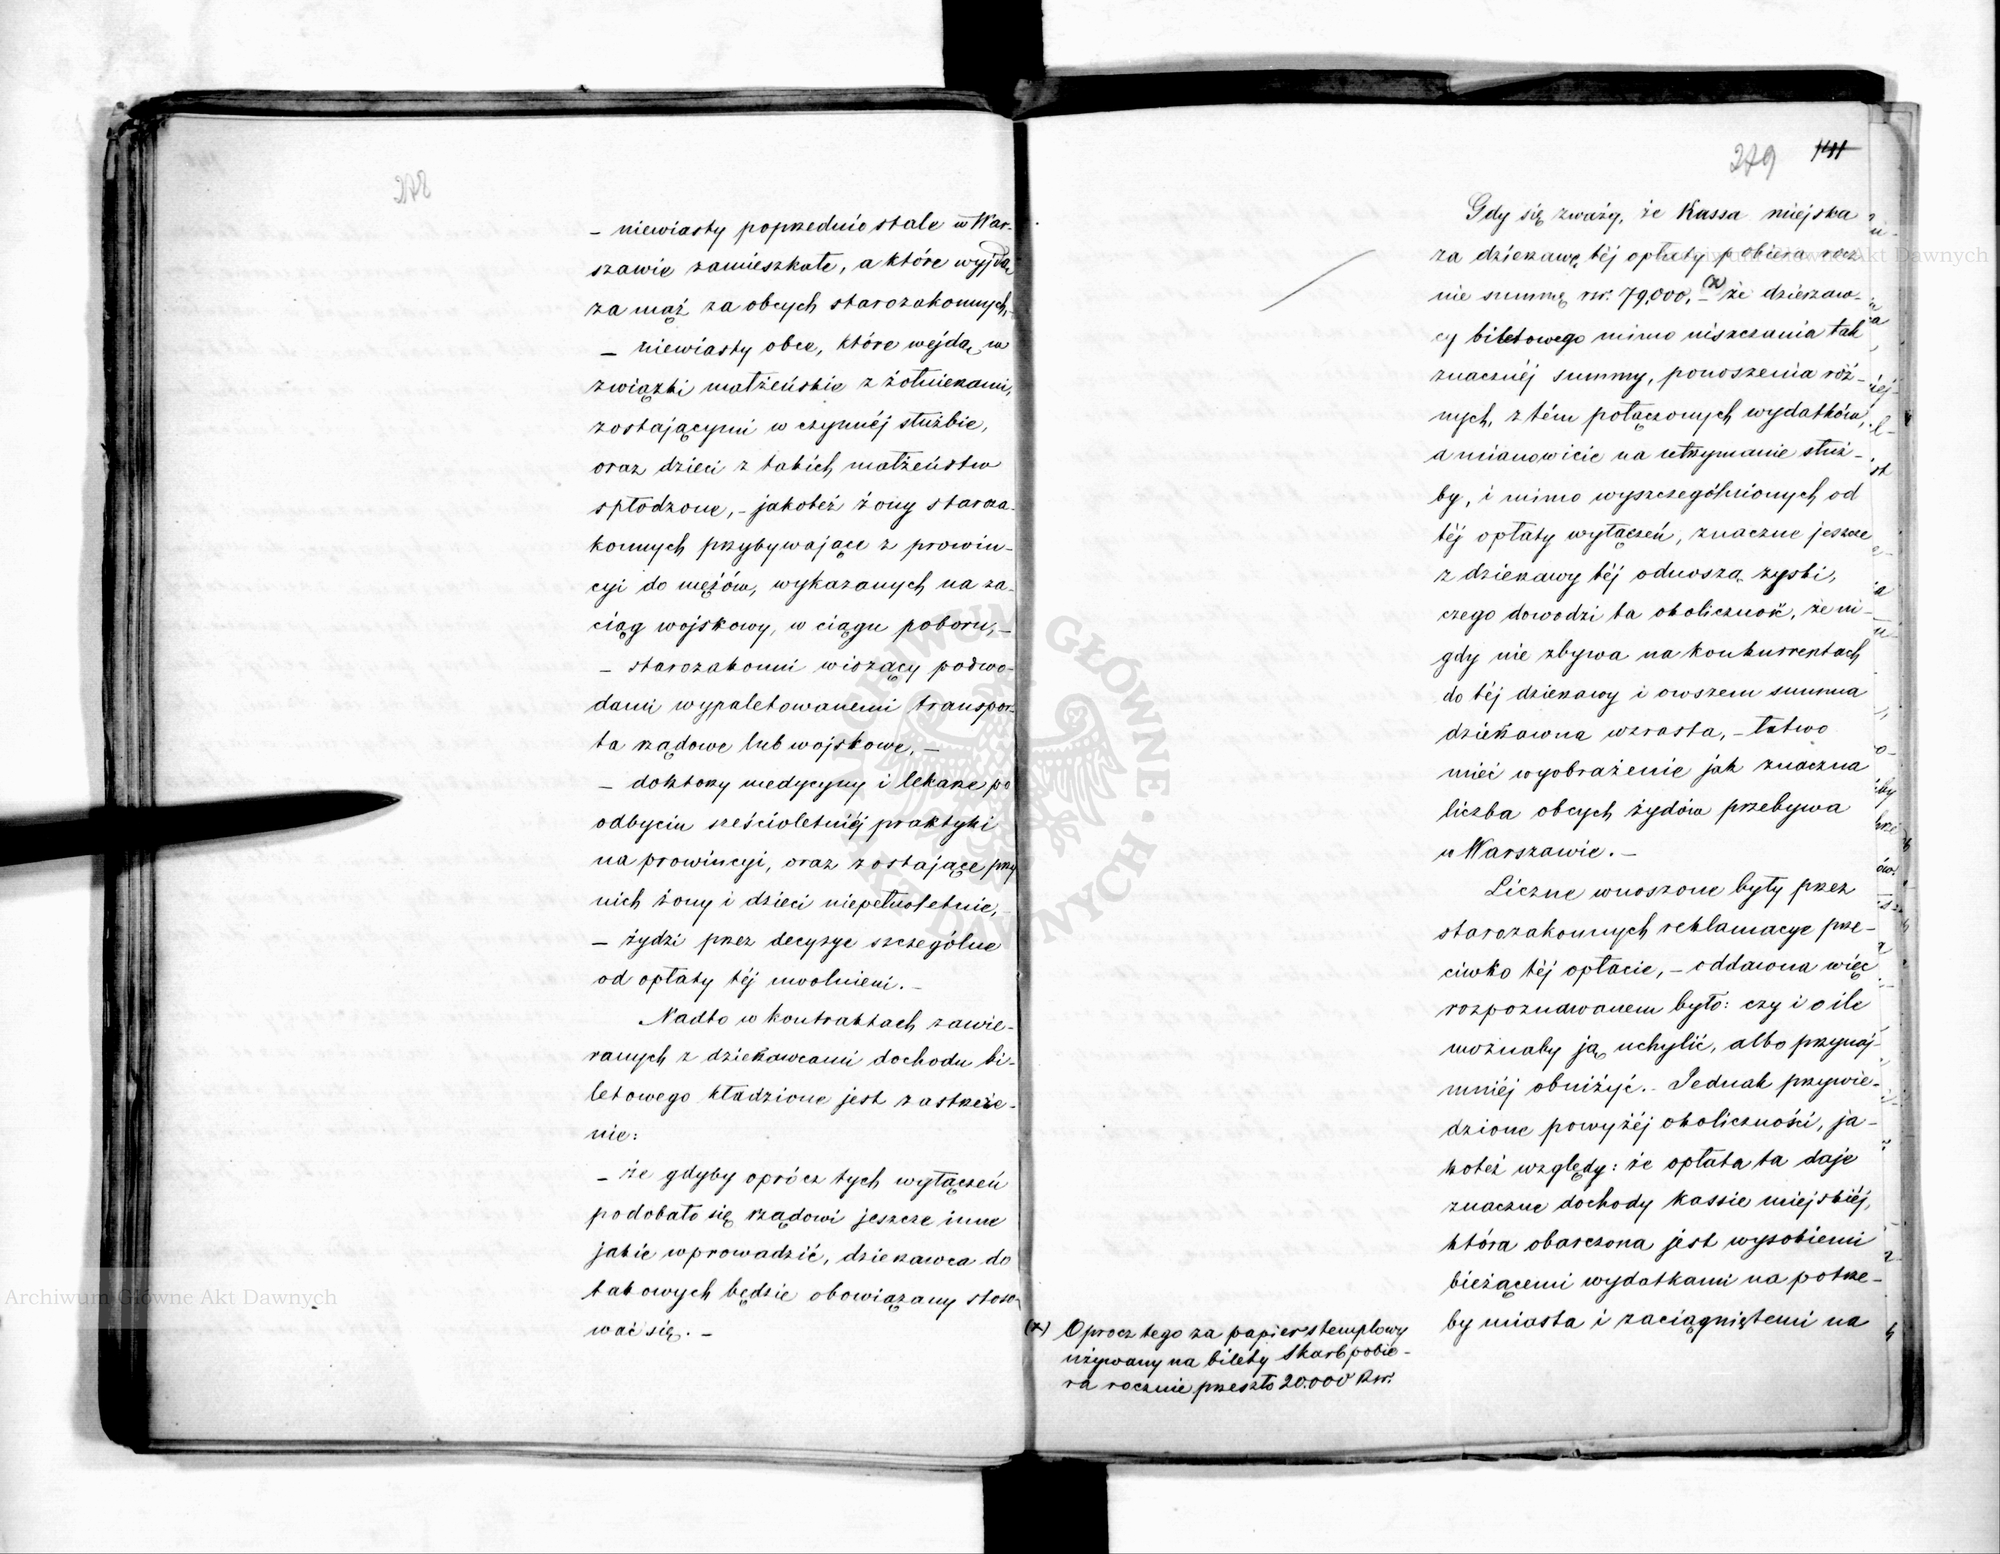 278
– niewiasty poprzednio stale w War-
szawie zamieszkałe, a które wyjdą
za mąż za obcych starozakonnych,–
– niewiasty obce, które wejdą w
związki małżeńskie z żołnierzami,
zostającymi w czynnéj służbie,
oraz dzieci z takich małżeństw
spłodzone,– jakoteż żony staroza-
konnych przybywające z prowin-
cyi do mężów, wykazanych na za-
ciąg wojskowy, w ciągu poboru,–
– starozakonni wiozący podwo-
dami wypaletowanemi transpor-
ta rządowe lub wojskowe,–
– doktorzy medycyny i lekarze po
odbyciu sześcioletniéj praktyki
na prowincyi, oraz zostające przy
nich żony i dzieci niepełnoletnie,–
– żydzi przez decyzye szczególne
od opłaty téj uwolnieni.–
Nadto w kontraktach zawie-
ranych z dzierżawcami dochodu bi-
letowego kładzione jest zastrzeże-
nie:
– że gdyby oprócz tych wyłączeń
podobało się rządowi jeszcze inne
jakie wprowadzić, dzierżawca do
takowych będzie obowiązany stoso-
wać się.–
279
141
Gdy się zważy, że Kassa miejska
za dzierżawę téj opłaty pobiera rocz
nie summę rsr. 79,000,–(x) że dzierżaw-
cy biletowego mimo uiszczania tak
znacznéj summy, ponoszenia róż-
nych, z tém połączonych wydatków,
a mianowicie na utrzymanie służ-
by, i mimo wyszczególnionych od
téj opłaty wyłączeń, znaczne jeszcze
z dzierżawy téj odnoszą zyski,
czego dowodzi ta okoliczność, że ni-
gdy nie zbywa na konkurrentach
do téj dzierżawy i owszem summa
dzierżawna wzrasta,– łatwo
mieć wyobrażenie jak znaczna
liczba obcych żydów przebywa
w Warszawie.–
Liczne wnoszone były przez
starozakonnych reklamacye prze-
ciwko téj opłacie,– oddawna więc
rozpoznawanem było: czy i o ile
możnaby ją uchylić, albo przynaj-
mniéj obniżyć.– Jednak przywie-
dzione powyżéj okoliczności, ja-
koteż względy: że opłata ta daje
znaczne dochody kassie miejskiéj,
która obarczona jest wysokiemi
bieżącemi wydatkami na potrze-
by miasta i zaciągniętemi na
(x) Oprócz tego za papier stemplowy
używany na bilety Skarb pobie-
ra rocznie przeszło 20.000 Rsr.
Archiwum Główne Akt Dawnych
Archiwum Główne Akt Dawnych
ARCHIWUM GŁÓWNE AKT DAWNYCH